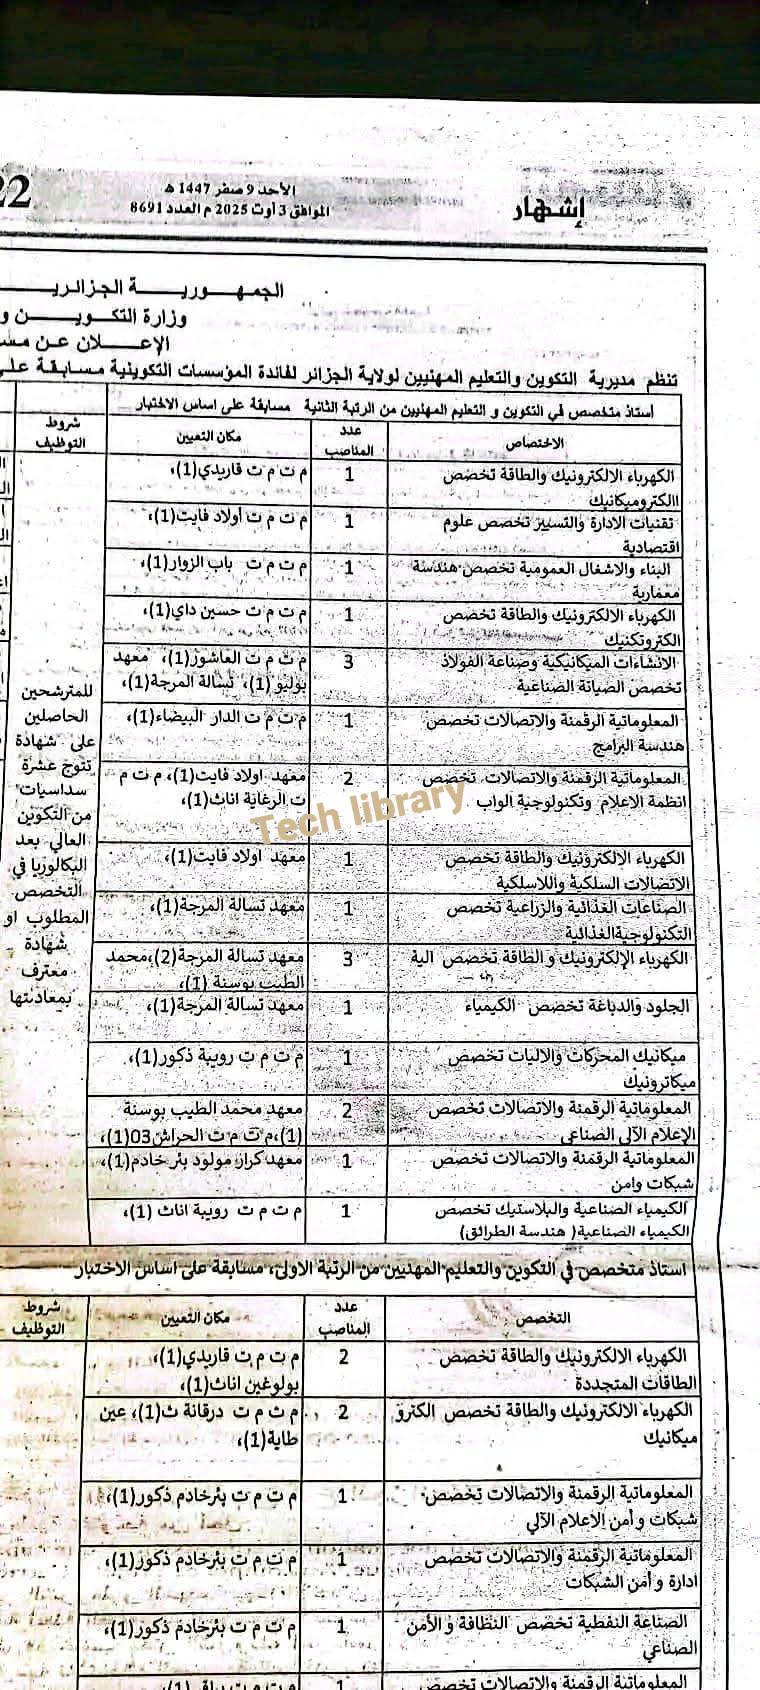 22
الأحد 9 صفر 1447 هـ
الموافق 3 أوت 2025 م العدد 8691
إشهار
الجمهورية الجزائرية
وزارة التكوين و
الإعلان عن
تنظم مديرية التكوين والتعليم المهنيين لولاية الجزائر لفائدة المؤسسات التكوينية مسابقة على
أستاذ متخصص في التكوين و التعليم المهنيين من الرتبة الثانية مسابقة على اساس الاختبار
الاختصاص
عدد
المناصب
مكان التعيين
شروط
التوظيف
الكهرباء الالكترونيك والطاقة تخصص
االكتروميكانيك
1
م ت م ت قاريدي(1)،
تقنيات الادارة والتسيير تخصص علوم
اقتصادية
1
م ت م ت أولاد فايت(1)،
البناء والاشغال العمومية تخصص هندسة
معمارية
1
م ت م ت باب الزوار(1)،
الكهرباء الالكترونيك والطاقة تخصص
الكتروتكنيك
1
م ت م ت حسين داي(1)،
الانشاءات الميكانيكية وصناعة الفولاذ
تخصص الصيانة الصناعية
3
م ت م ت العاشور(1)، معهد
بوليو(1)، تسالة المرجة(1)،
المعلوماتية الرقمنة والاتصالات تخصص
هندسة البرامج
1
م ت م ت الدار البيضاء(1)،
المعلوماتية الرقمنة والاتصالات تخصص
انظمة الاعلام وتكنولوجية الواب
2
معهد اولاد فايت(1)، م ت م
ت الرغاية اناث(1)،
الكهرباء الالكترونيك والطاقة تخصص
الاتصالات السلكية واللاسلكية
1
معهد اولاد فايت(1)،
الصناعات الغذائية والزراعية تخصص
التكنولوجيةالغذائية
1
معهد تسالة المرجة(1)،
الكهرباء الإلكترونيك و الطاقة تخصص الية
3
معهد تسالة المرجة(2)،محمد
الطيب بوسنة (1)،
الجلود والدباغة تخصص الكيمياء
1
معهد تسالة المرجة(1)،
ميكانيك المحركات والاليات تخصص
ميكاترونيك
1
م ت م ت رويبة ذكور(1)،
المعلوماتية الرقمنة والاتصالات تخصص
الإعلام الآلي الصناعي
2
معهد محمد الطيب بوسنة
(1)،م ت م ت الحراش03(1)،
المعلوماتية الرقمنة والاتصالات تخصص
شبكات وامن
1
معهد كراز مولود بئر خادم(1)،
الكيمياء الصناعية والبلاستيك تخصص
الكيمياء الصناعية( هندسة الطرائق)
1
م ت م ت رويبة اناث (1)،
للمترشحين
الحاصلين
على شهادة
تتوج عشرة
سداسيات
من التكوين
العالي بعد
البكالوريا في
التخصص
المطلوب او
شهادة
معترف
بمعادلتها
Tech library
استاذ متخصص في التكوين والتعليم المهنيين من الرتبة الاولى، مسابقة على اساس الاختبار
التخصص
عدد
المناصب
مكان التعيين
شروط
التوظيف
الكهرباء الالكترونيك والطاقة تخصص
الطاقات المتجددة
2
م ت م ت قاريدي(1)،
بولوغين اناث(1)،
الكهرباء الالكترونيك والطاقة تخصص الكترو
ميكانيك
2
م ت م ت درقانة ث(1)، عين
طاية(1)،
المعلوماتية الرقمنة والاتصالات تخصص
شبكات و أمن الإعلام الآلي
1
م ت م ت بئرخادم ذكور(1)،
المعلوماتية الرقمنة والاتصالات تخصص
ادارة و أمن الشبكات
1
م ت م ت بئرخادم ذكور(1)،
الصناعة النفطية تخصص النظافة و الأمن
الصناعي
1
م ت م ت بئرخادم ذكور(1)،
المعلوماتية الرقمنة والاتصالات تخصص
1